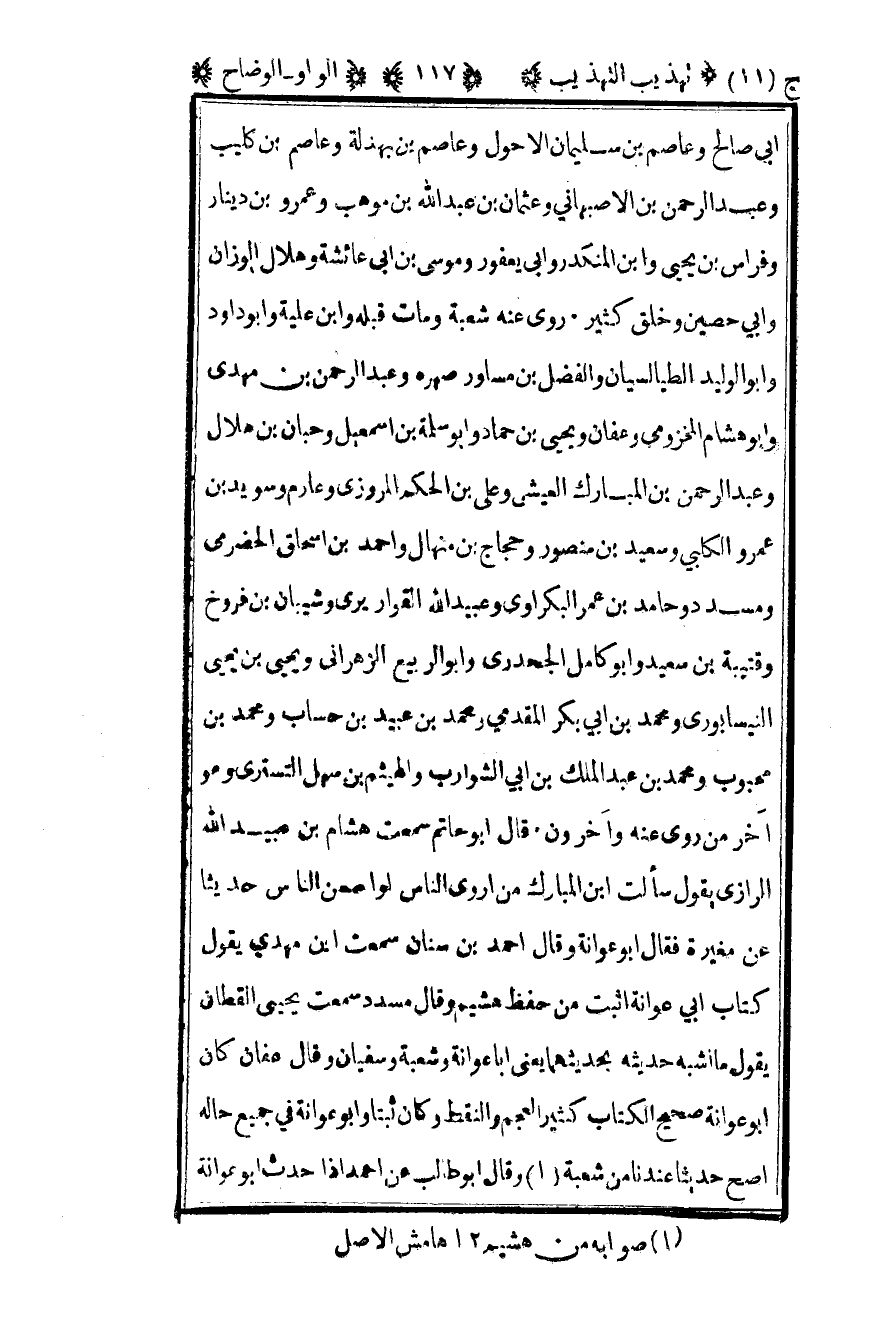 ج (١١) ﴿ تهذيب التهذيب ﴾ ﴿ ١١٧ ﴾ ﴿ الواو-الوضاح ﴾
ابي صالح وعاصم بن سليمان الاحول وعاصم بن بهدلة وعاصم بن كليب
وعبد الرحمن بن الاصبهاني وعثمان بن عبدالله بن موهب وعمرو بن دينار
وفراس بن يحيى وابن المنكدر وابي يعفور وموسى بن ابى عائشة وهلال الوزان
وابي حصين وخلق كثير ٠ روى عنه شعبة ومات قبله وابن علية وابوداود
وابوالوليد الطيالسيان والفضل بن مساور صهره وعبد الرحمن بن مهدى
وابوهشام المخزومي وعفان ويحيى بن حماد وابوسلمة بن اسمعيل وحبان بن هلال
وعبدالرحمن بن المبارك العيشى وعلى بن الحكم المروزى وعارم وسويد بن
عمرو الكلبي وسعيد بن منصور وحجاج بن منهال واحمد بن اسحاق الحضرمى
ومسدد وحامد بن عمر البكراوى وعبيدالله القواريرى وشيبان بن فروخ
وقتيبة بن سعيد وابوكامل الجحدرى وابوالربيع الزهرانى ويحيى بن يحيى
النيسابورى ومحمد بن ابي بكر المقدمي ومحمد بن عبيد بن حساب ومحمد بن
محبوب ومحمد بن عبدالملك بن ابي الشوارب والهيثم بن سهل التسترى وهو
آخر من روى عنه وآخرون ٠ قال ابوحاتم سمعت هشام بن عبيد الله
الرازى يقول سألت ابن المبارك من اروى الناس لواحسن الناس حديثا
عن مغيرة فقال ابوعوانة وقال احمد بن سنان سمعت ابن مهدي يقول
كتاب ابي عوانة اثبت من حفظ هشيم وقال مسدد سمعت يحيى القطان
يقول ما اشبه حديثه بحديثهما يعنى اباعوانة وشعبة وسفيان وقال عفان كان
ابوعوانة صحيح الكتاب كثير العجم والنقط وكان ثبتا وابوعوانة في جميع حاله
اصح حديثا عندنا من شعبة (١) وقال ابوطالب عن احمد اذا حدث ابوعوانة
(١) صوابه من هشيم ١٢ هامش الاصل